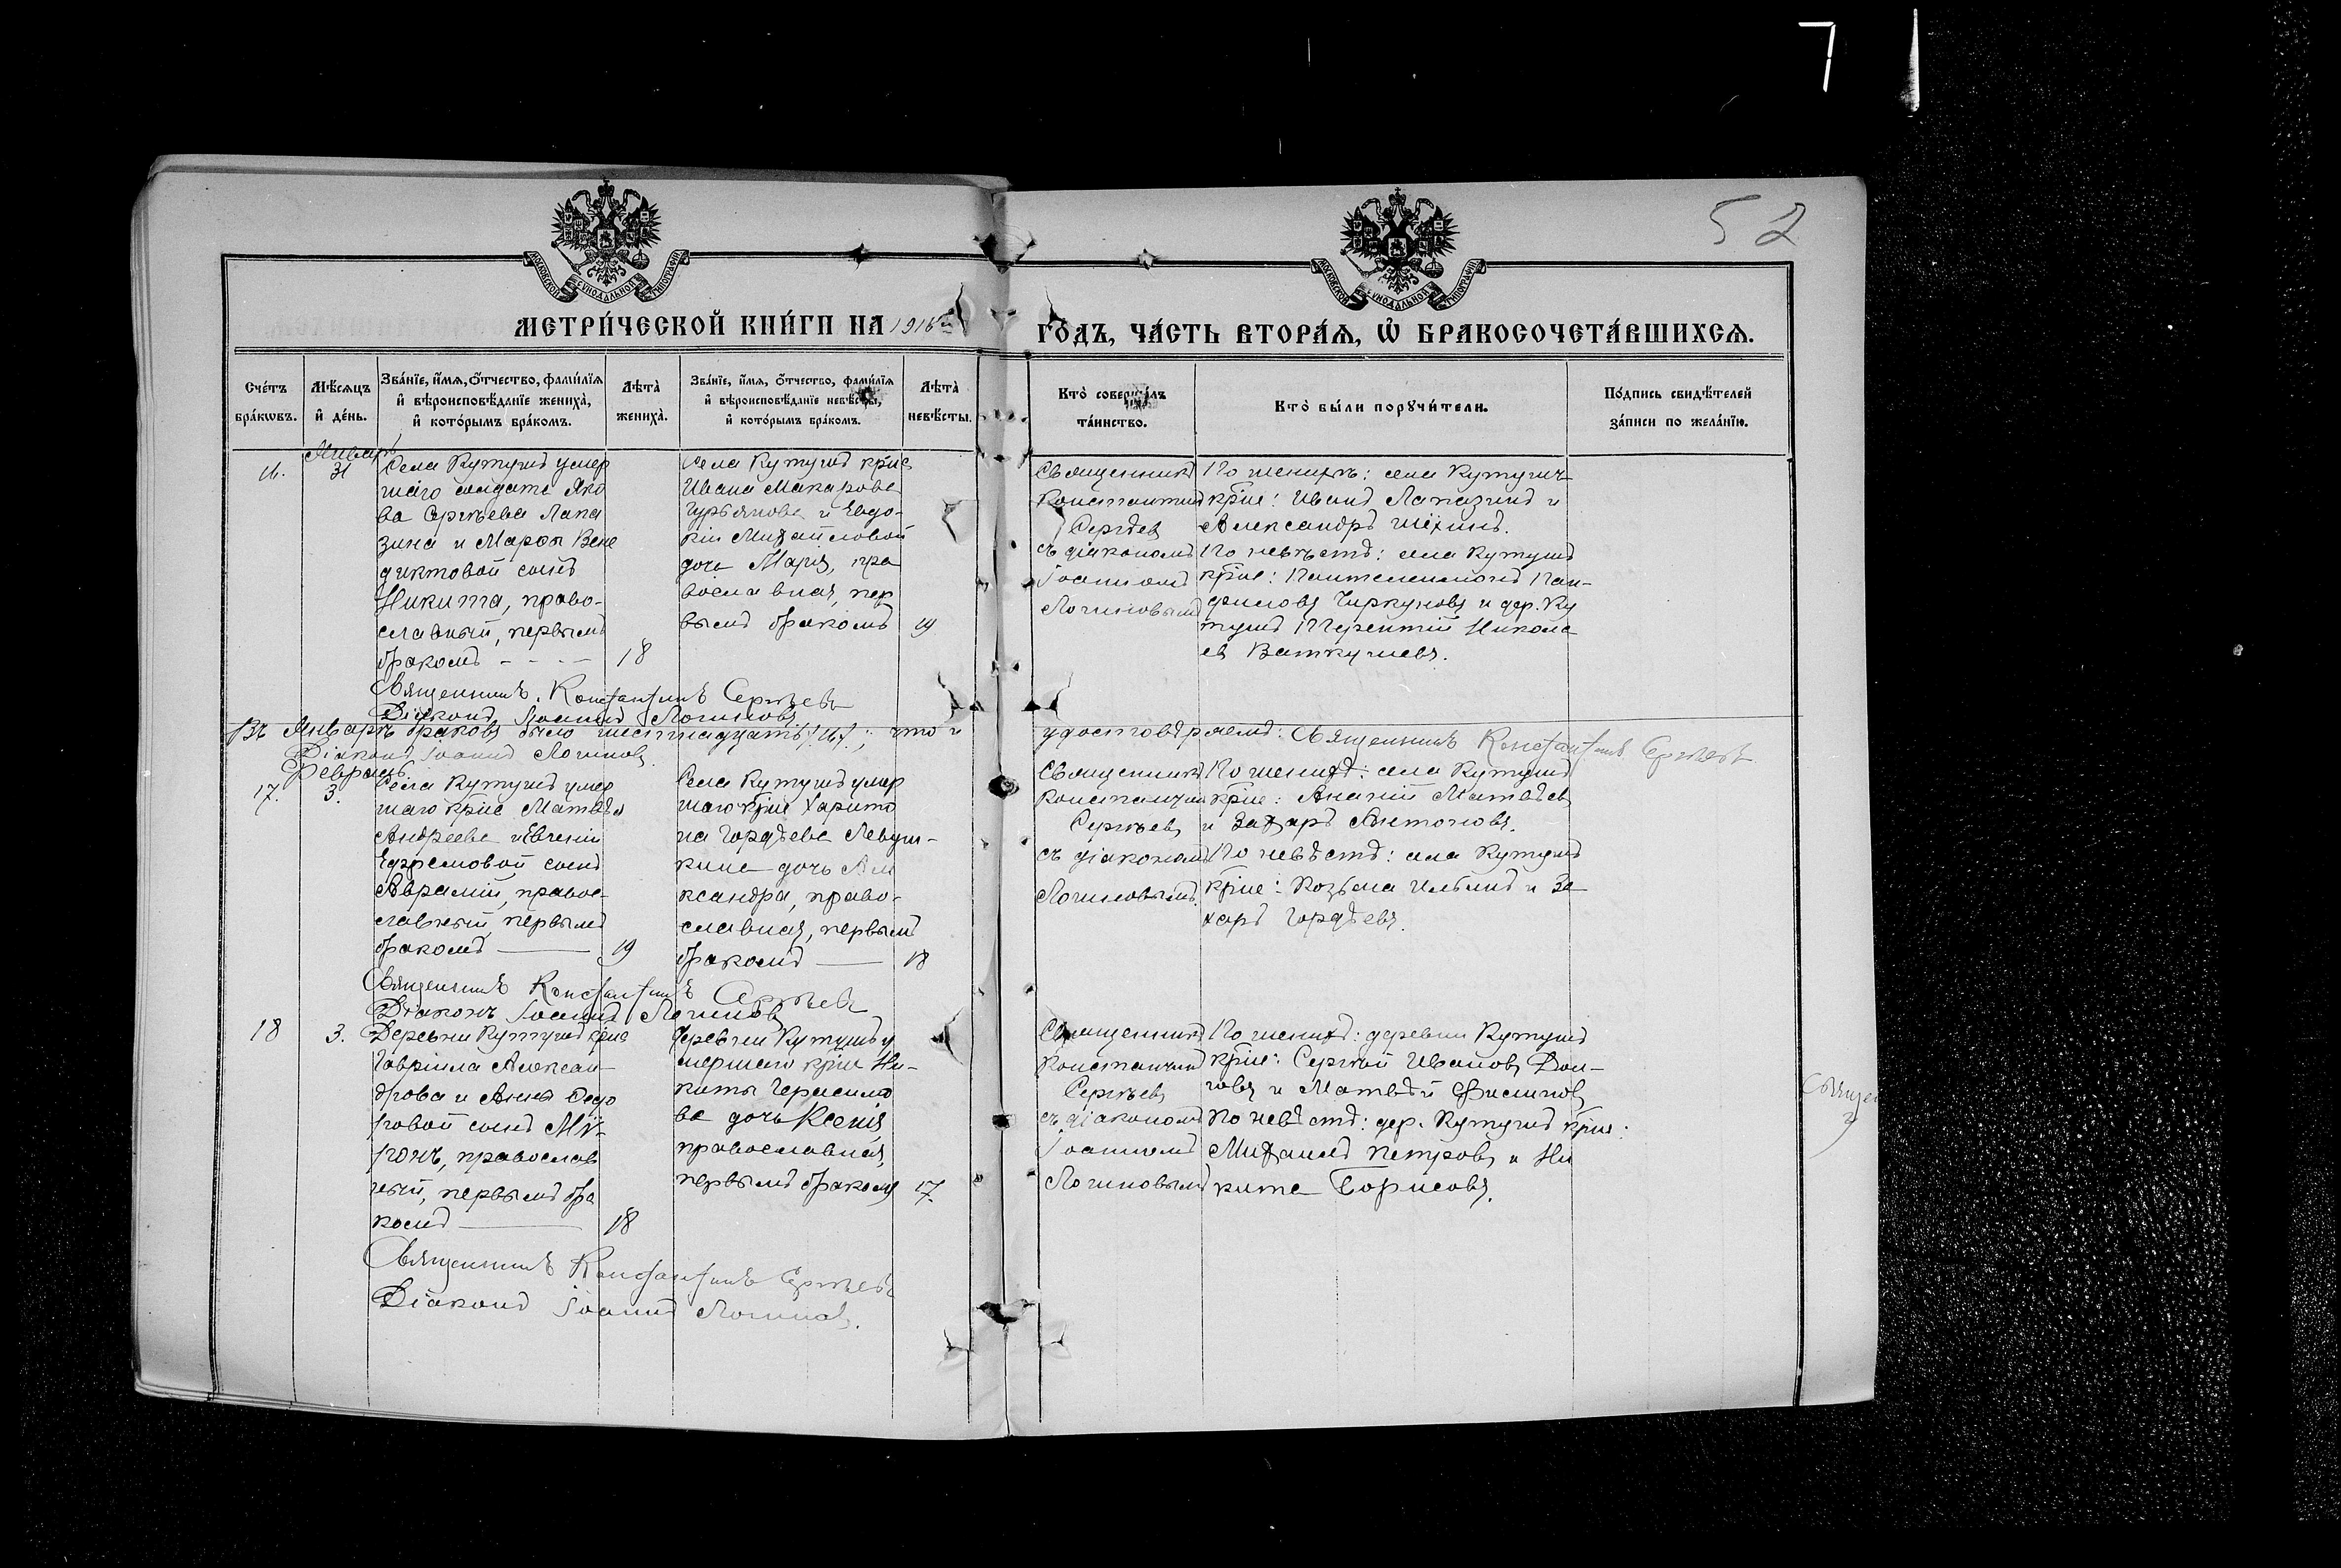 52
МЕТРИ́ЧЕСКОЙ КНИ́ГИ НА 1916й ГО́ДЪ, ЧА́СТЬ ВТОРА́Я, Ѡ҆ БРАКОСОЧЕТА́ВШИХСЯ.
МОСКОВСКОЙ СѴНОДАЛЬНОЙ ТИПОГРАФІИ
МОСКОВСКОЙ СѴНОДАЛЬНОЙ ТИПОГРАФІИ
Сче́тъ бра́кѡвъ.
Мѣ́сяцъ и҆ де́нь.
Зва́нїе, и҆́мя, ѻ҆́тчество, фами́лїя и҆ вѣроисповѣ́данїе жениха̀, и҆ кото́рымъ бра́комъ.
Лѣта̀ жениха̀.
Зва́нїе, и҆́мя, ѻ҆́тчество, фами́лїя и҆ вѣроисповѣ́данїе невѣ́сты, и҆ кото́рымъ бра́комъ.
Лѣта̀ невѣ́сты.
Кто̀ соверша́лъ та́инство.
Кто̀ бы́ли порꙋчи́тели.
По́дпись свидѣ́телей за́писи по жела́нїю.
16.
Январь
31
Села Кутушъ умер
шаго солдата Яко
ва Сергѣева Лапа
зина и Марѳы Вене
диктовой сынъ
Никита, право-
славный, первымъ
бракомъ - - - -
18
Села Кутушъ крѣс
Ивана Макарова
Гурьянова и Евдо-
кіи Михайловой
дочь Марія, пра
вославная, пер
вымъ бракомъ
19
Священникъ
Константинъ
Сергѣевъ
съ діакономъ
Іоанномъ
Логиновымъ
По женихѣ: села Кутушъ
крѣс: Иванъ Лапазинъ и
Александръ Шехинъ.
По невѣстѣ: села Кутушъ
крѣс: Пантелеимонъ Пан-
филовъ Чиркуновъ и дер. Ку
тушъ Терентій Никола
евъ Ваткучиевъ.
Священникъ Константинъ Сергѣевъ
Діаконъ Іоаннъ Логиновъ
Въ Январѣ браковъ было шестнадцать /16/; что и удостовѣряемъ: Священникъ Константинъ Сергѣевъ
Діаконъ Іоаннъ Логиновъ.
Февраль
17.
3.
Села Кутушъ умер
шаго крѣс Матвѣя
Андреева и Евгеніи
Ефремовой сынъ
Аврамій, право-
славный, первымъ
бракомъ
19
Села Кутушъ умер
шаго крѣс Харито
на Гордѣева Левуш-
кина дочь Але
ксандра, право-
славная, первымъ
бракомъ
18
Священникъ
Константинъ
Сергѣевъ
съ діакономъ
Логиновымъ.
По женихѣ: села Кутушъ
крѣс: Ананій Матвѣевъ
и Захаръ Антоновъ.
По невѣстѣ: села Кутушъ
крѣс: Козьма Ильинъ и За
харъ Гордѣевъ.
Священникъ Константинъ Сергѣевъ
Діаконъ Іоаннъ Логиновъ
18
3.
Деревни Кутушъ крѣс
Гавріила Алексан-
дрова и Анны Ѳедо
ровой сынъ Мѵ-
ронъ, православ
ный, первымъ бра
комъ
18
Деревни Кутушъ у
мершаго крѣс Ни-
киты Герасимо
ва дочь Ксенія
православная,
первымъ бракомъ
17.
Священникъ
Константинъ
Сергѣевъ
съ діакономъ
Іоанномъ
Логиновымъ
По женихѣ: деревни Кутушъ
крѣс: Сергѣй Ивановъ Дол-
говъ и Матвѣй Филиповъ
По невѣстѣ: дер. Кутушъ крѣс:
Михаилъ Петровъ и Ни
кита Борисовъ.
Священникъ Константинъ Сергѣевъ
Діаконъ Іоаннъ Логиновъ.